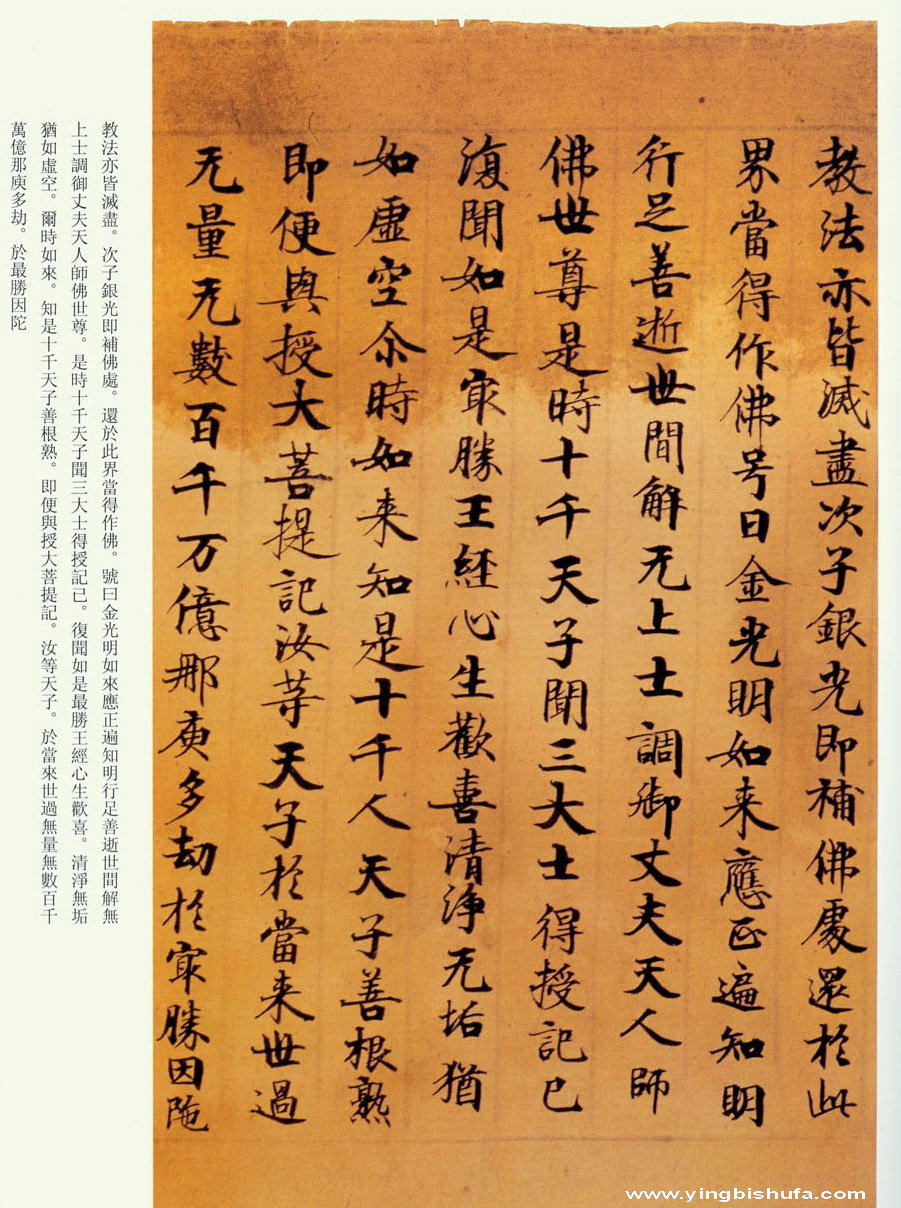 教法亦皆滅盡次子銀光即補佛處還於此
界當得作佛号曰金光明如来應正遍知明
行足善逝世間解无上士調御丈夫天人師
佛世尊是時十千天子聞三大士得授記已
復聞如是冣勝王經心生歡喜清浄无垢猶
如虛空尒時如来知是十千人天子善根熟
即便與授大菩提記汝等天子於當来世過
无量无數百千万億那庾多劫於冣勝因陁
教法亦皆滅盡。次子銀光即補佛處。還於此界當得作佛。號曰金光明如來應正遍知明行足善逝世間解無
上士調御丈夫天人師佛世尊。是時十千天子聞三大士得授記已。復聞如是最勝王經心生歡喜。清淨無垢
猶如虛空。爾時如來。知是十千天子善根熟。即便與授大菩提記。汝等天子。於當來世過無量無數百千
萬億那庾多劫。於最勝因陀
www.yingbishufa.com